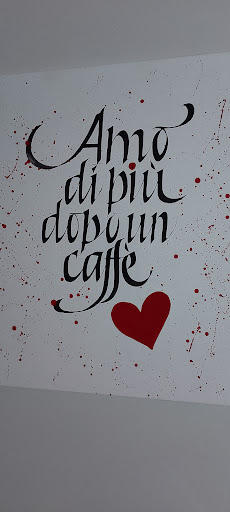 Amo
di più
dopo un
caffè